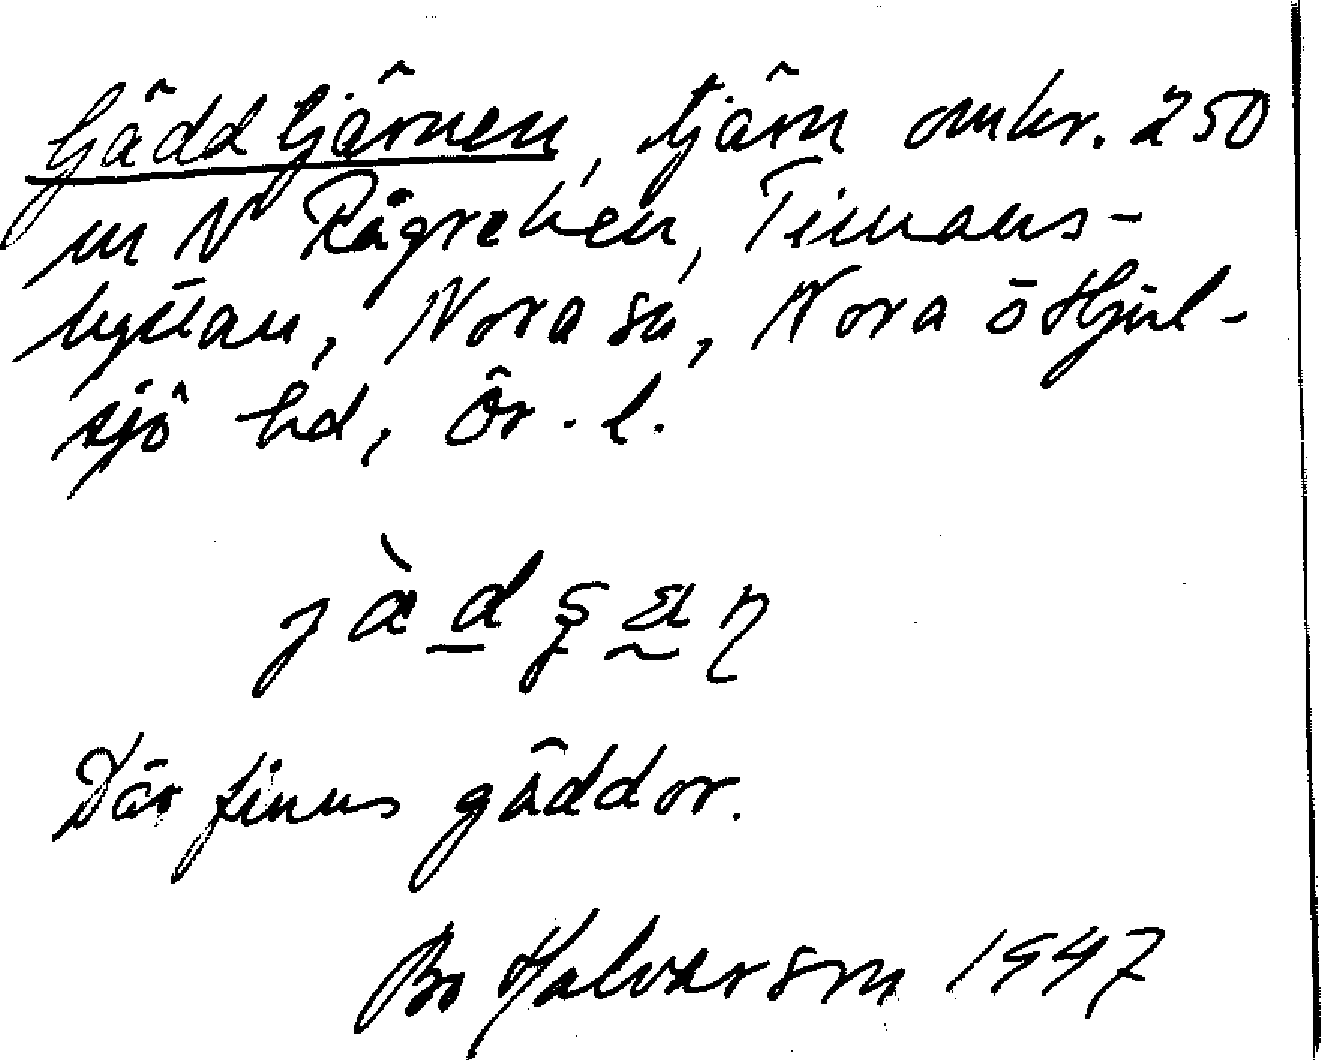 Gäddtjärnen, tjärn omkr. 250
m N Rågreken, Timans-
hyttan, Nora sn, Nora o Hjul-
sjö hd, Ör. l.
Där finns gäddor.
Bo Halvarson 1947